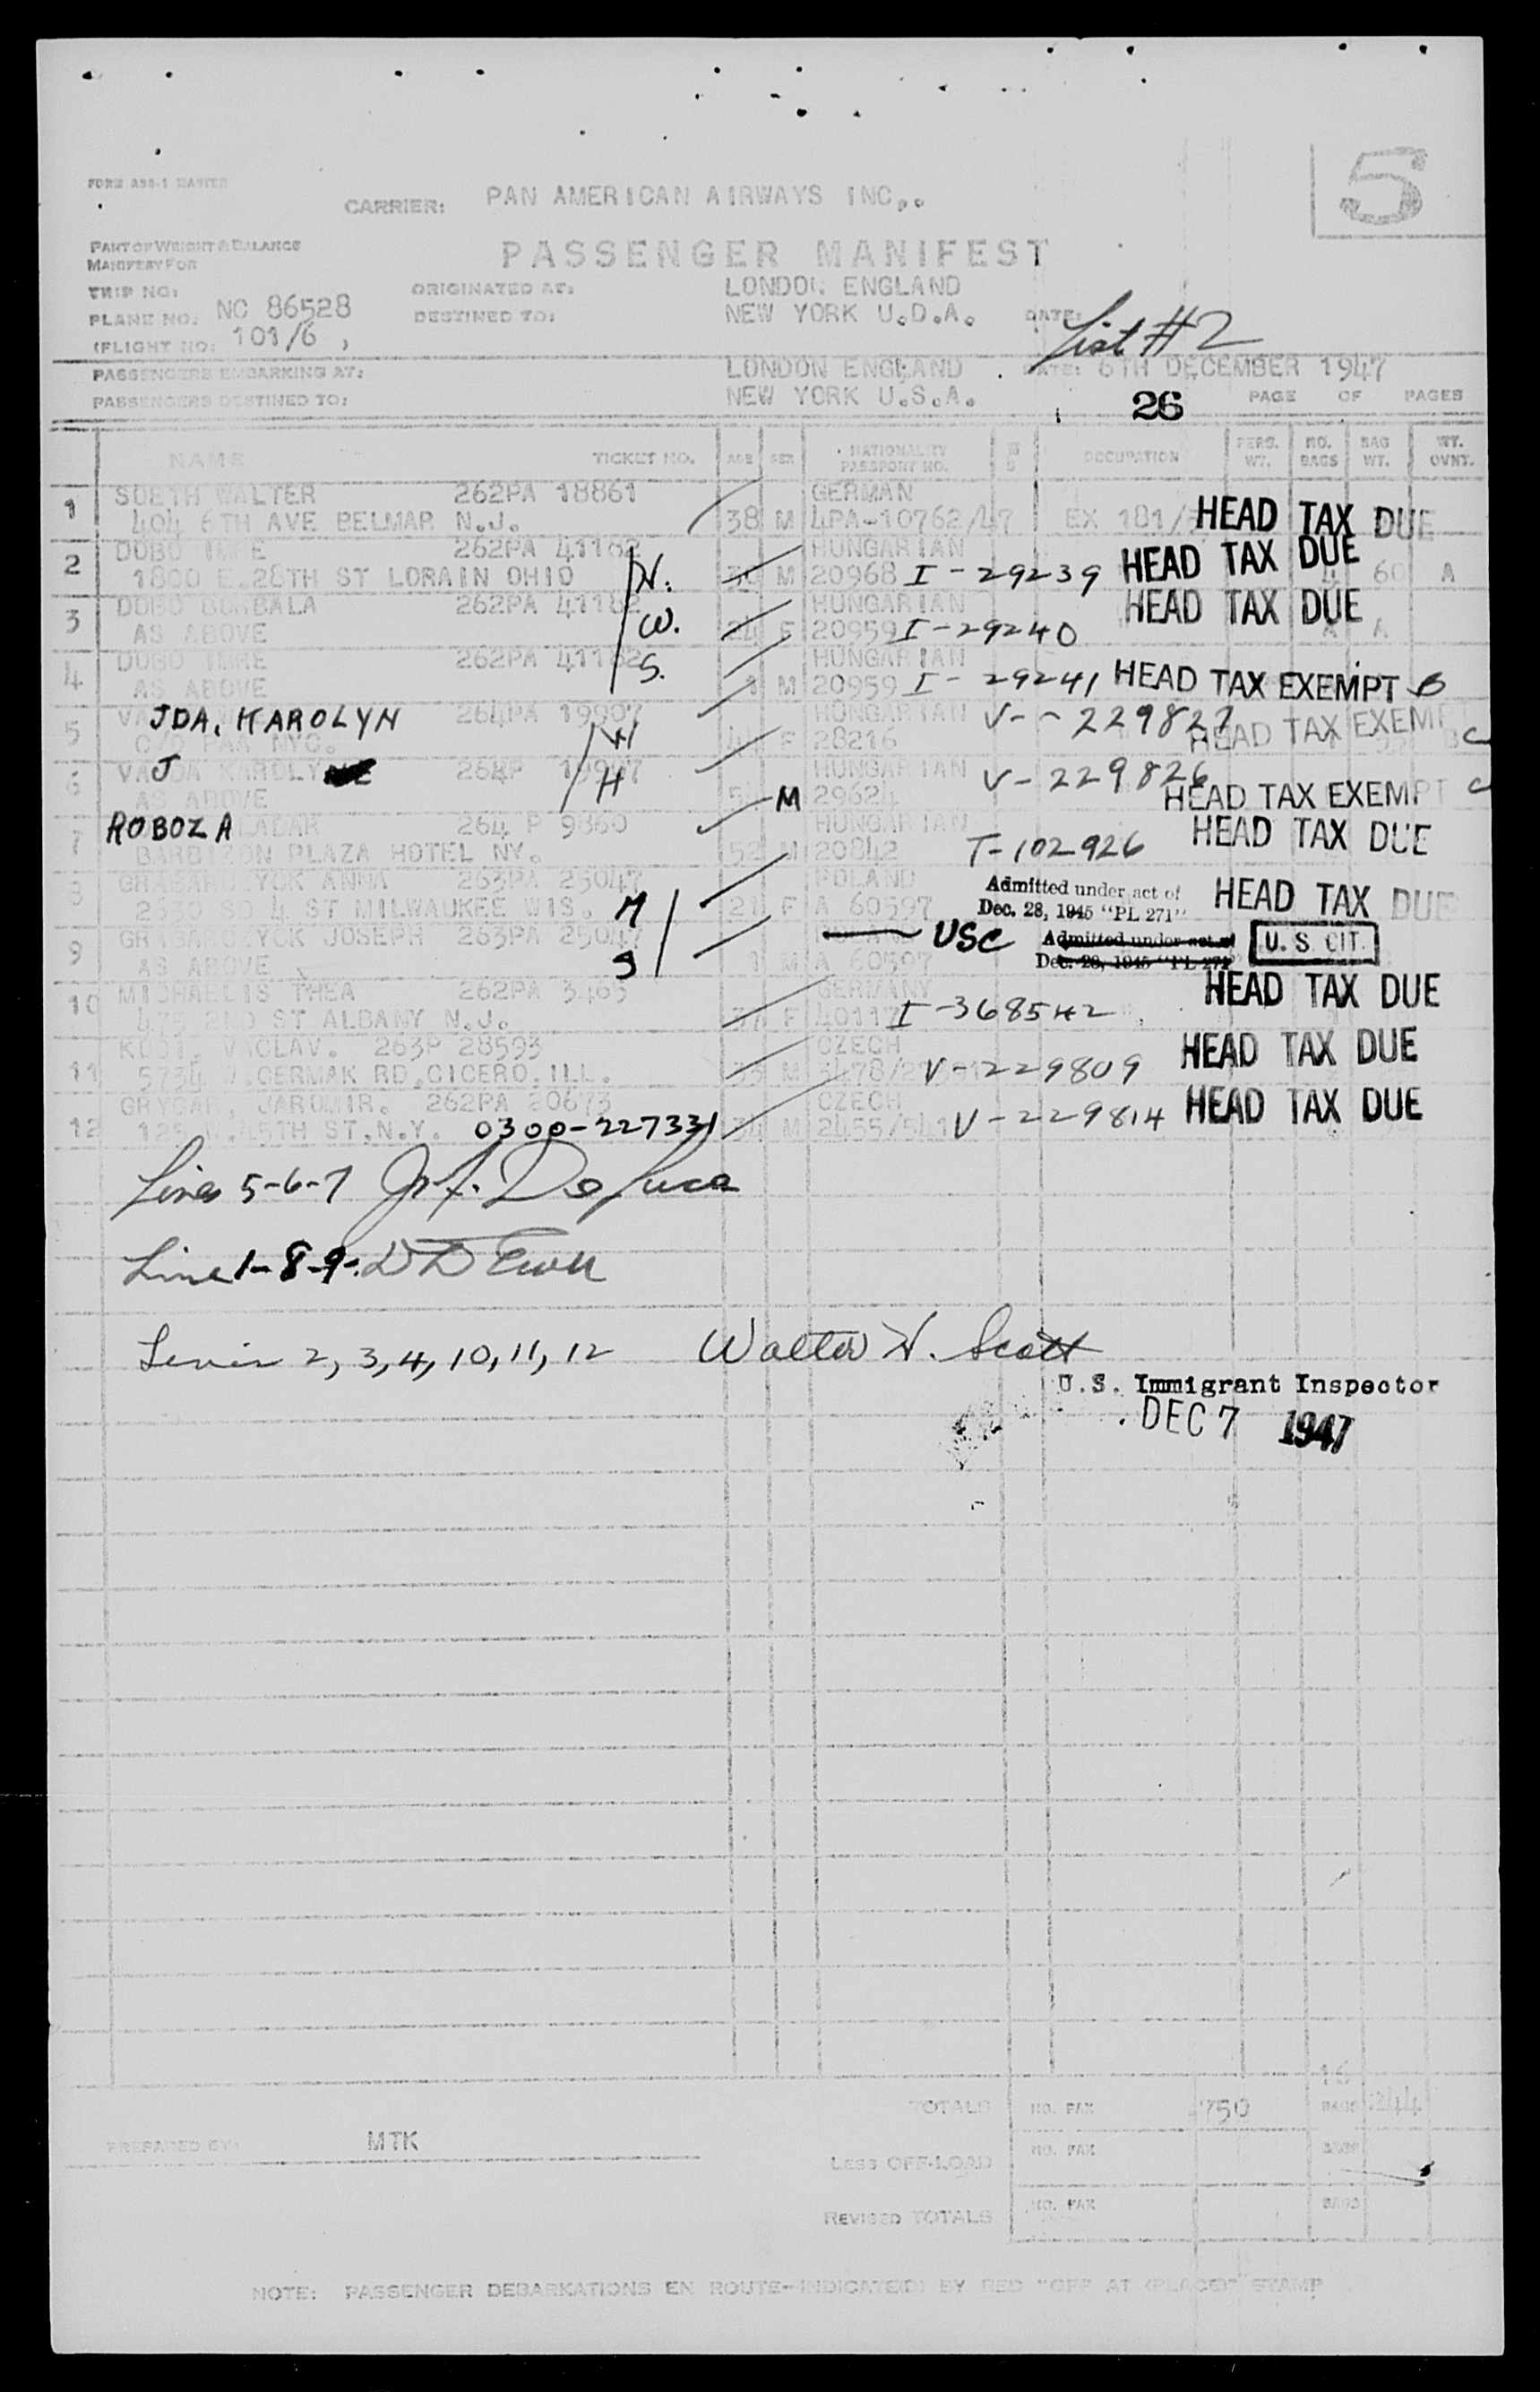 5
CARRIER: PAN AMERICAN AIRWAYS INC..
PART OF WEIGHT & BALANCE
MANIFEST FOR
PASSENGER MANIFEST
TRIP NO:
ORIGINATED AT: LONDON ENGLAND
PLANE NO. NC 86528
DESTINED TO: NEW YORK U.D.A. DATE:
List #2
(FLIGHT NO: 101/6 )
PASSENGERS EMBARKING AT: LONDON ENGLAND DATE: 6TH DECEMBER 1947
PASSENGERS DESTINED TO: NEW YORK U.S.A. 26 PAGE OF PAGES
NAME TICKET NO. AGE SEX NATIONALITY PASSPORT NO. OCCUPATION PERS. WT. NO. BAGS BAG WT. WT. OVNT.
1 SUETH WALTER 262PA 18861 GERMAN
404 6TH AVE BELMAR N.J. 38 M 4PA-10762/47 EX 181/ HEAD TAX DUE
2 DOBO IMRE 262PA 41182 HUNGARIAN
1800 E.28TH ST LORAIN OHIO H. M 20968 I-29239 HEAD TAX DUE 60 A
3 DOBO BORBALA 262PA 41182 HUNGARIAN
AS ABOVE W. 24 F 20959 I-29240 HEAD TAX DUE
4 DOBO IMRE 262PA 41182 HUNGARIAN
AS ABOVE S. 1 M 20959 I-29241 HEAD TAX EXEMPT B
5 JDA, KAROLYN 264PA 19907 HUNGARIAN
C/O PAA NYC. W F 28216 V--229827 HEAD TAX EXEMPT C
6 VAJDA KAROLY HUNGARIAN
AS ABOVE H M 2962 V-229826 HEAD TAX EXEMPT C
7 ROBOZ A LADAR 264 P 9860 HUNGARIAN
BARBIZON PLAZA HOTEL NY. 52 M 20842 T-102926 HEAD TAX DUE
8 ANNA 263PA 25047 POLAND
2630 SO 4 ST MILWAUKEE WIS. M 21 F A 60597 Admitted under act of Dec. 28, 1945 "PL 271" HEAD TAX DUE
9 JOSEPH 263PA 25047
AS ABOVE S 1 M A 60597 USC Admitted under act of Dec. 28, 1945 "PL 271" U. S. CIT.
10 MICHAELIS THEA 262PA 3465 GERMANY
ST ALBANY N.J. F I-368542 HEAD TAX DUE
11 VACLAV. 263P 28593 CZECH
5734 W.CERMAK RD.CICERO.ILL. M V-229809 HEAD TAX DUE
12 GRYGAR, JAROMIR. 262PA 20673 CZECH
ST.N.Y. 0300-227331 34 M 2455/541 V-229814 HEAD TAX DUE
Lines 5-6-7 J. F. DeLuca
Line 1-8-9-
Lines 2, 3, 4, 10, 11, 12 Walter H. Scott
U.S. Immigrant Inspector
DEC 7 1947
TOTALS NO. PAX 750 BAGS 244
PREPARED BY: MTK
NO. PAX
LESS OFF-LOAD
REVISED TOTALS NO. PAX BAGS
NOTE: PASSENGER DEBARKATIONS EN ROUTE-INDICATED BY RED "OFF AT (PLACE)" STAMP